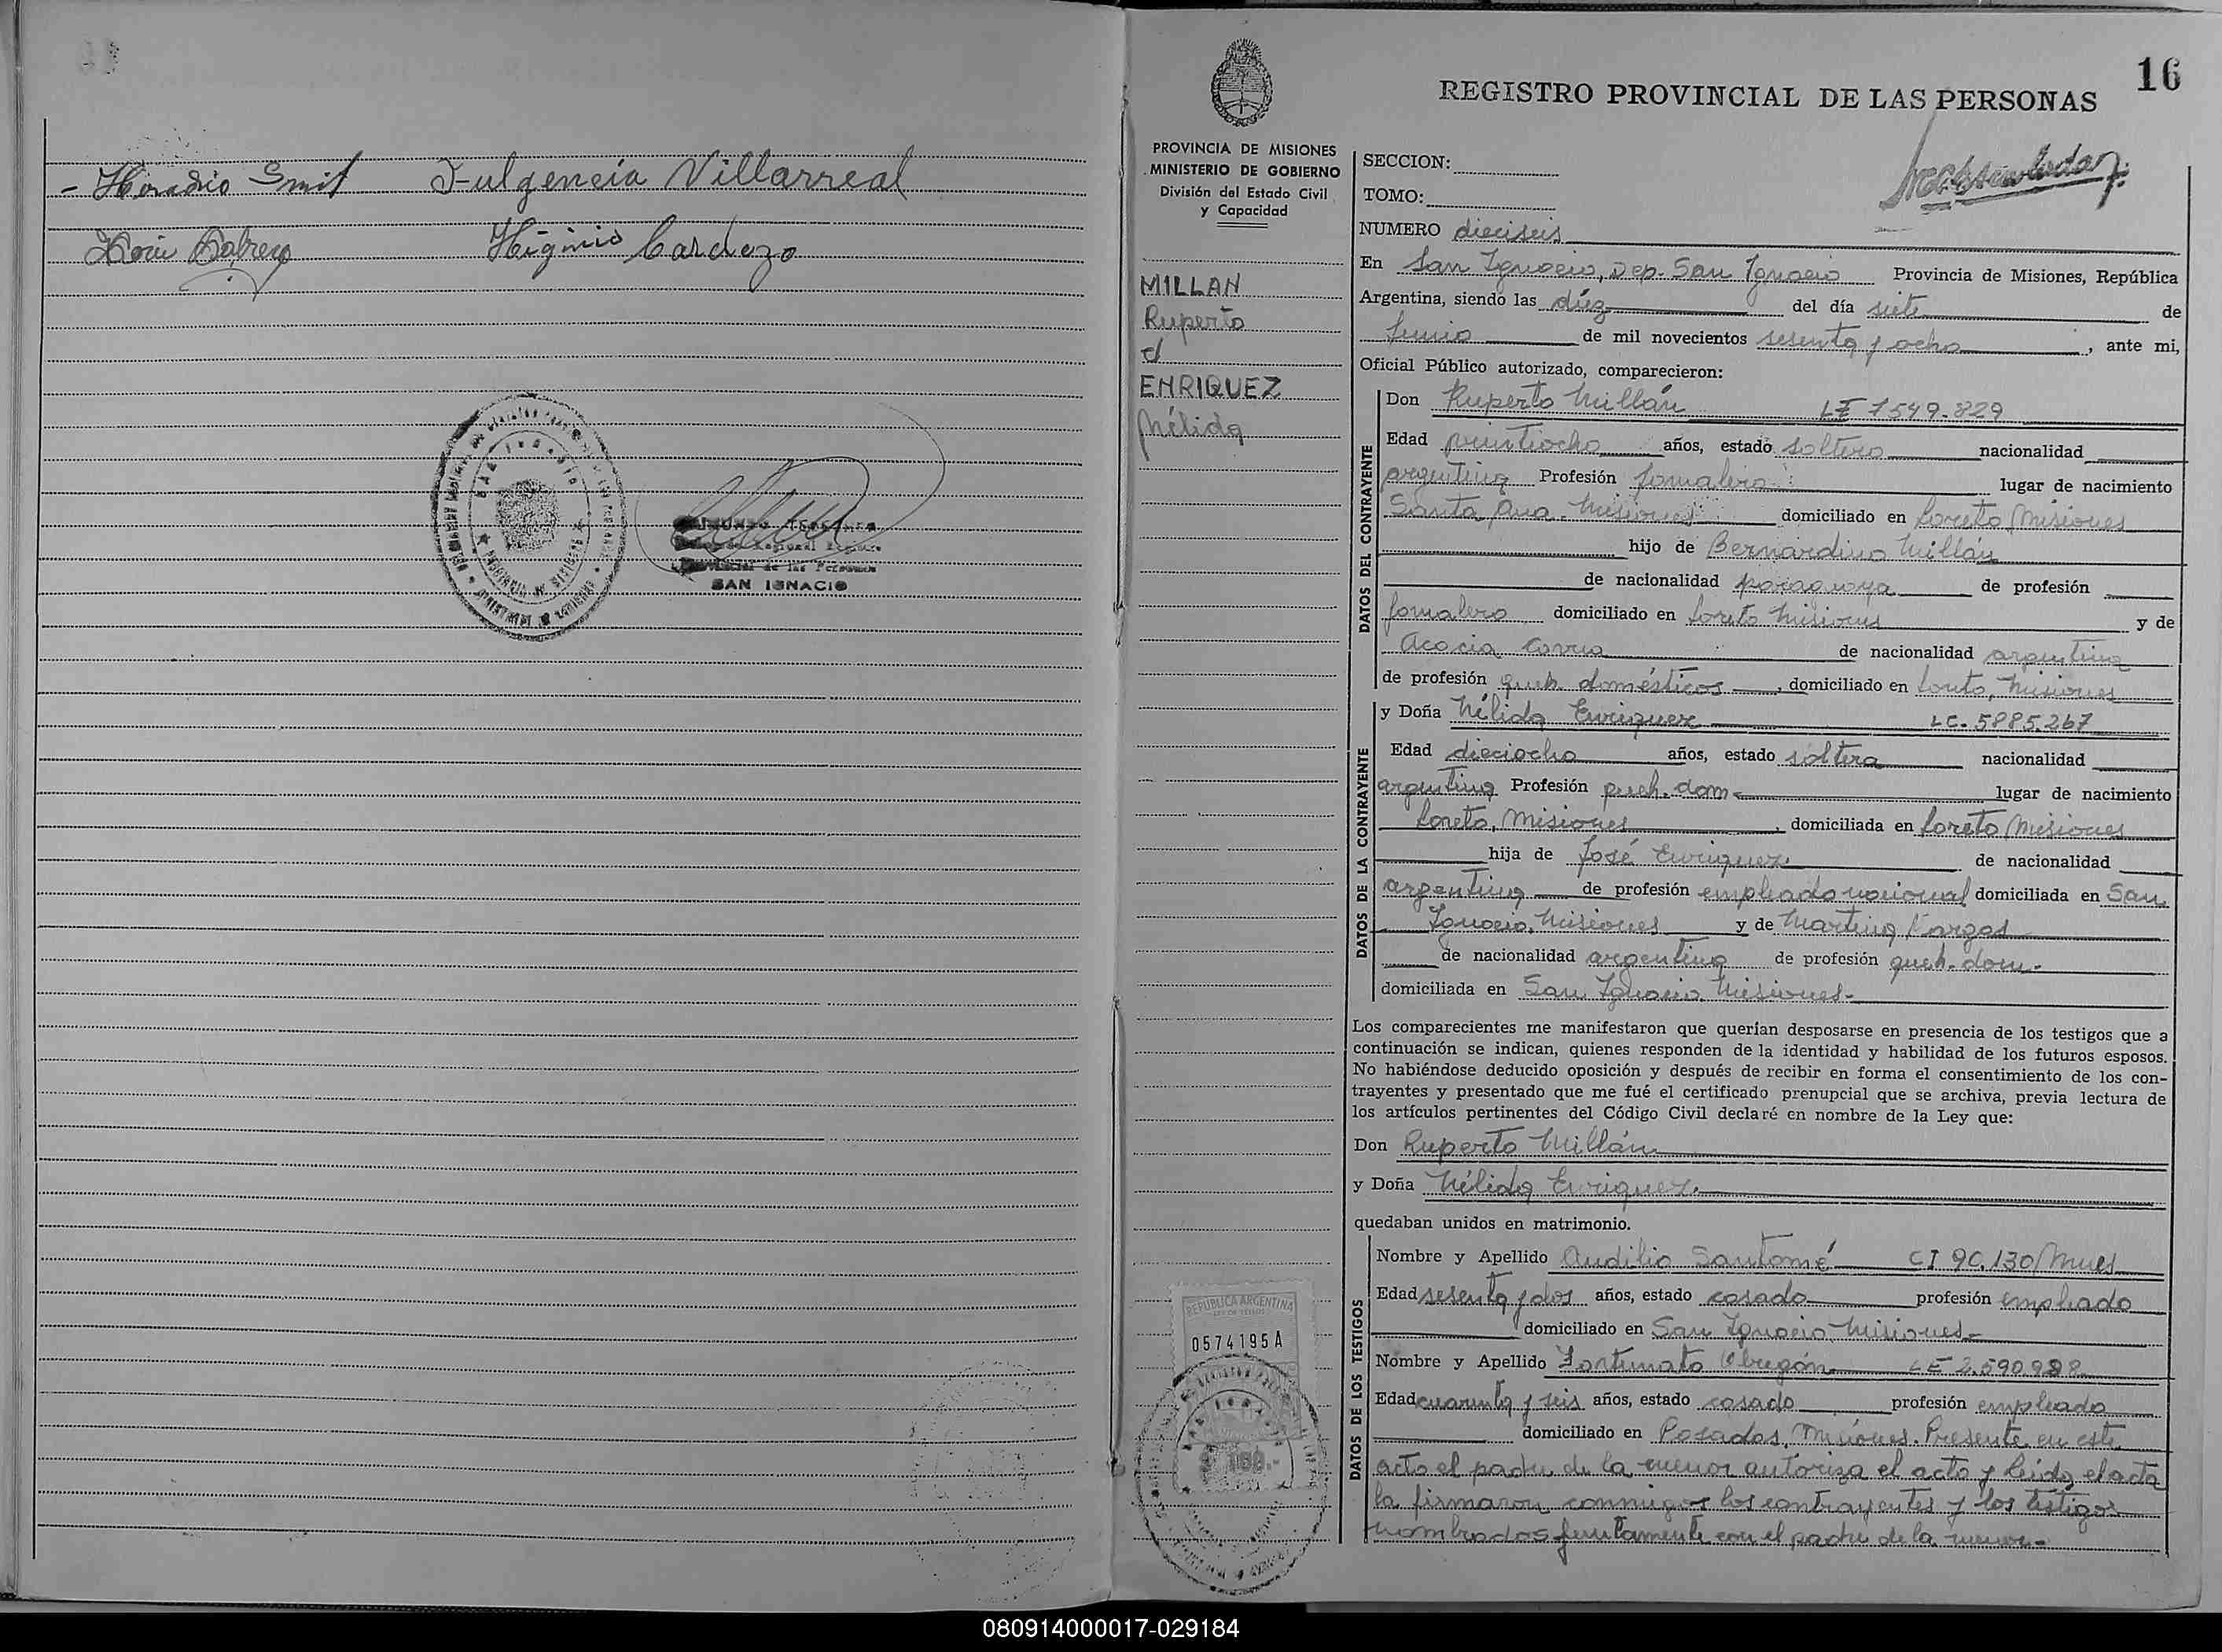 - Horadio Smit Fulgencia Villarreal
Higinio Cardozo
SAN IGNACIO
16
REGISTRO PROVINCIAL DE LAS PERSONAS
PROVINCIA DE MISIONES
MINISTERIO DE GOBIERNO
División del Estado Civil
y Capacidad
MILLAN
Ruperto
c/
ENRIQUEZ
Nélida
REPUBLICA ARGENTINA
0574195 A
SECCION:
TOMO:
NUMERO dieciseis
En San Ignacio, Dep. San Ignacio Provincia de Misiones, República
Argentina, siendo las diez del día siete de
Junio de mil novecientos sesenta y ocho, ante mi,
Oficial Público autorizado, comparecieron:
DATOS DEL CONTRAYENTE
Don Ruperto Millán LE 7549.829
Edad años, estado soltero nacionalidad
argentina Profesión Jornalero lugar de nacimiento
Santa Ana. Misiones domiciliado en Loreto Misiones
hijo de Bernardino Millán
de nacionalidad paraguaya de profesión
Jornalero domiciliado en Loreto Misiones y de
Acacia Correa de nacionalidad argentina
de profesión queh. domésticos, domiciliado en Loreto, Misiones
DATOS DE LA CONTRAYENTE
y Doña Nélida Enriquez LC. 5885.267
Edad dieciocho años, estado soltera nacionalidad
argentina Profesión queh. dom lugar de nacimiento
Loreto, Misiones, domiciliada en Loreto Misiones
hija de José Enriquez de nacionalidad
argentina de profesión empleado nacional domiciliada en San
Ignacio. Misiones y de Martina Vargas
de nacionalidad argentina de profesión queh. dom.
domiciliada en San Ignacio Misiones.
Los comparecientes me manifestaron que querían desposarse en presencia de los testigos que a
continuación se indican, quienes responden de la identidad y habilidad de los futuros esposos.
No habiéndose deducido oposición y después de recibir en forma el consentimiento de los con-
trayentes y presentado que me fué el certificado prenupcial que se archiva, previa lectura de
los artículos pertinentes del Código Civil declaré en nombre de la Ley que:
Don Ruperto Millán
y Doña Nélida Enriquez.
quedaban unidos en matrimonio.
DATOS DE LOS TESTIGOS
Nombre y Apellido Audilio Santomé CI 90.130 Mnes
Edad sesenta y dos años, estado casado profesión empleado
domiciliado en San Ignacio Misiones
Nombre y Apellido Fortunato Obregón LE 2.590.988
Edad cuarenta y seis años, estado casado profesión empleado
domiciliado en Posadas, Misiones. Presente en este
acto el padre de la menor autoriza el acto y leida el acta
la firmaron conmigo los contrayentes y los testigos
nombrados juntamente con el padre de la menor.-
080914000017-029184